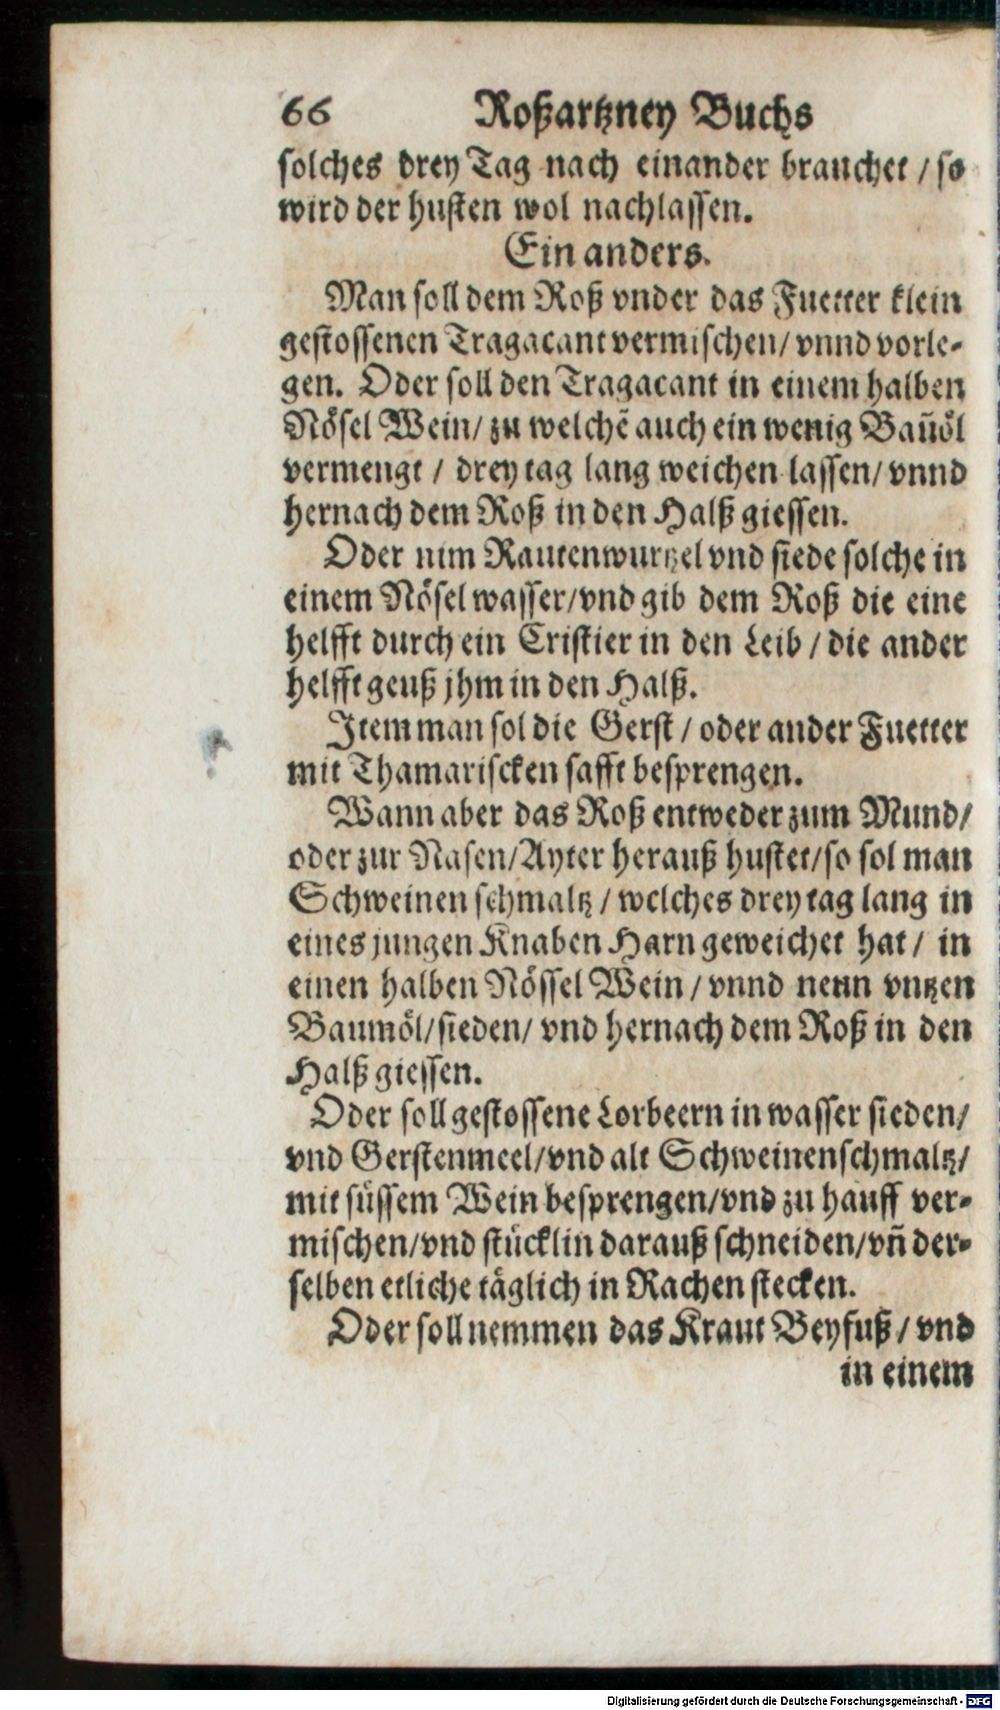 66 Roßartzney Buchs
solches drey Tag nach einander brauchet / so
wird der husten wol nachlassen.
Ein anders.
Man soll dem Roß vnder das Fuetter klein
gestossenen Tragacant vermischen / vnnd vorle-
gen. Oder soll den Tragacant in einem halben
Nösel Wein / zu welchē auch ein wenig Baūöl
vermengt / drey tag lang weichen lassen / vnnd
hernach dem Roß in den Halß giessen.
Oder nim Rautenwurtzel vnd siede solche in
einem Nösel wasser / vnd gib dem Roß die eine
helfft durch ein Cristier in den Leib / die ander
helfft geuß jhm in den Halß.
Item man sol die Gerst / oder ander Fuetter
mit Thamariscken safft besprengen.
Wann aber das Roß entweder zum Mund /
oder zur Nasen / Ayter herauß hustet / so sol man
Schweinen schmaltz / welches drey tag lang in
eines jungen Knaben Harn geweichet hat / in
einen halben Nössel Wein / vnnd neun vntzen
Baumöl / sieden / vnd hernach dem Roß in den
Halß giessen.
Oder soll gestossene Lorbeern in wasser sieden /
vnd Gerstenmeel / vnd alt Schweinenschmaltz /
mit süssem Wein besprengen / vnd zu hauff ver-
mischen / vnd stücklin darauß schneiden / vn̄ der-
selben etliche täglich in Rachen stecken.
Oder soll nemmen das Kraut Beyfuß / vnd
in einem
Digitalisierung gefördert durch die Deutsche Forschungsgemeinschaft - DFG